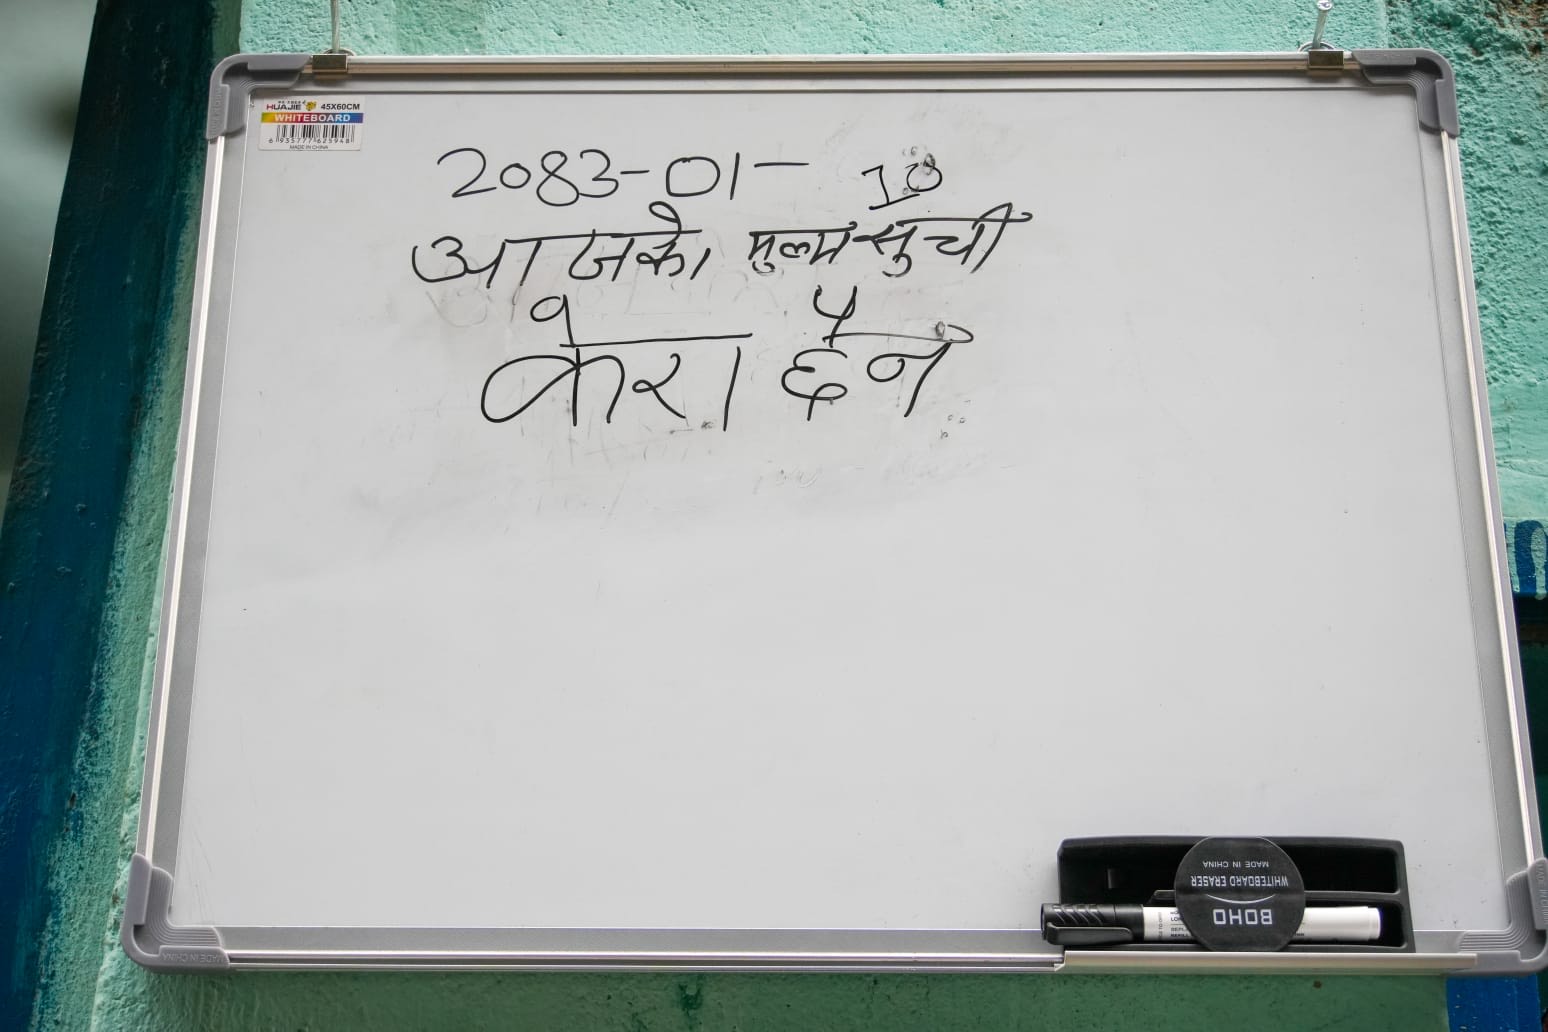 HUAJIE 45X60CM
WHITEBOARD
6 935777 625948
MADE IN CHINA
2083-01- 10
आजको मुल्य सुची
केरा छैन
MADE IN CHINA
WHITEBOARD ERASER
BOHO
MADE IN CHINA